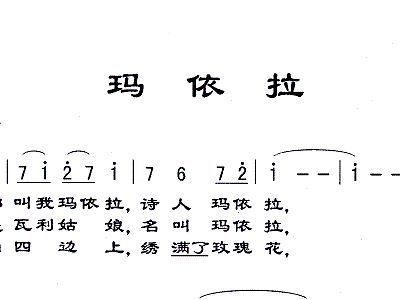 玛 依 拉
7 i 2 7 i 7 6 7 2 i – – i –
叫我玛依拉, 诗 人 玛依 拉,
瓦利姑 娘, 名 叫 玛依 拉,
四 边 上, 绣 满了玫瑰 花,